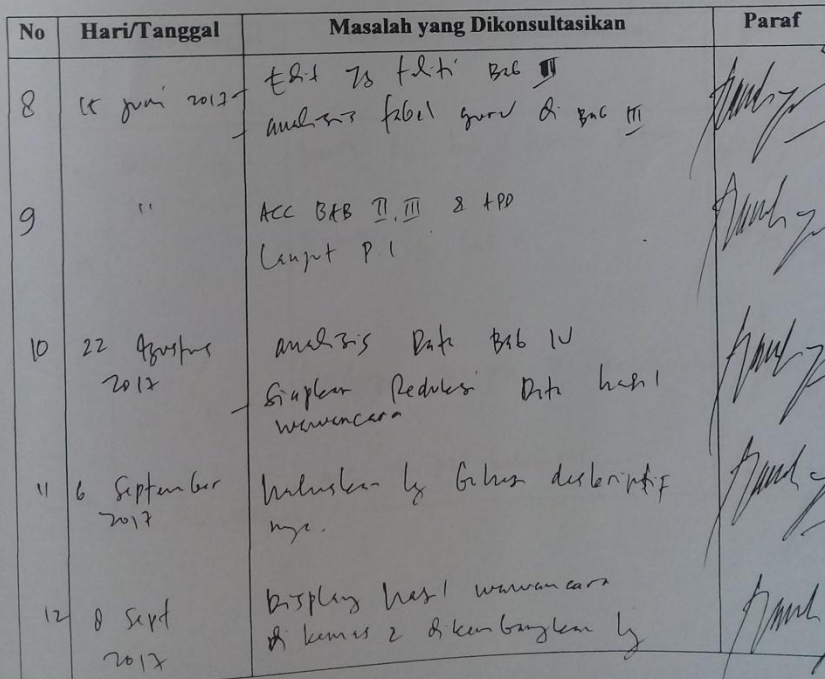 No Hari/Tanggal Masalah yang Dikonsultasikan Paraf
8 15 juni 2017 - Edit Bab II
- analisis tabel guru di Bab III
9 " ACC BAB II, III & APD
Lanjut P. I
10 22 Agustus analisis Data Bab IV
2017 - Siapkan Reduksi Data hasil
wawancara
11 6 September haluskan lg bahasa deskriptif
2017 nya.
12 8 Sept Display hasil wawancara
2017 di kemas 2 dikembangkan lg